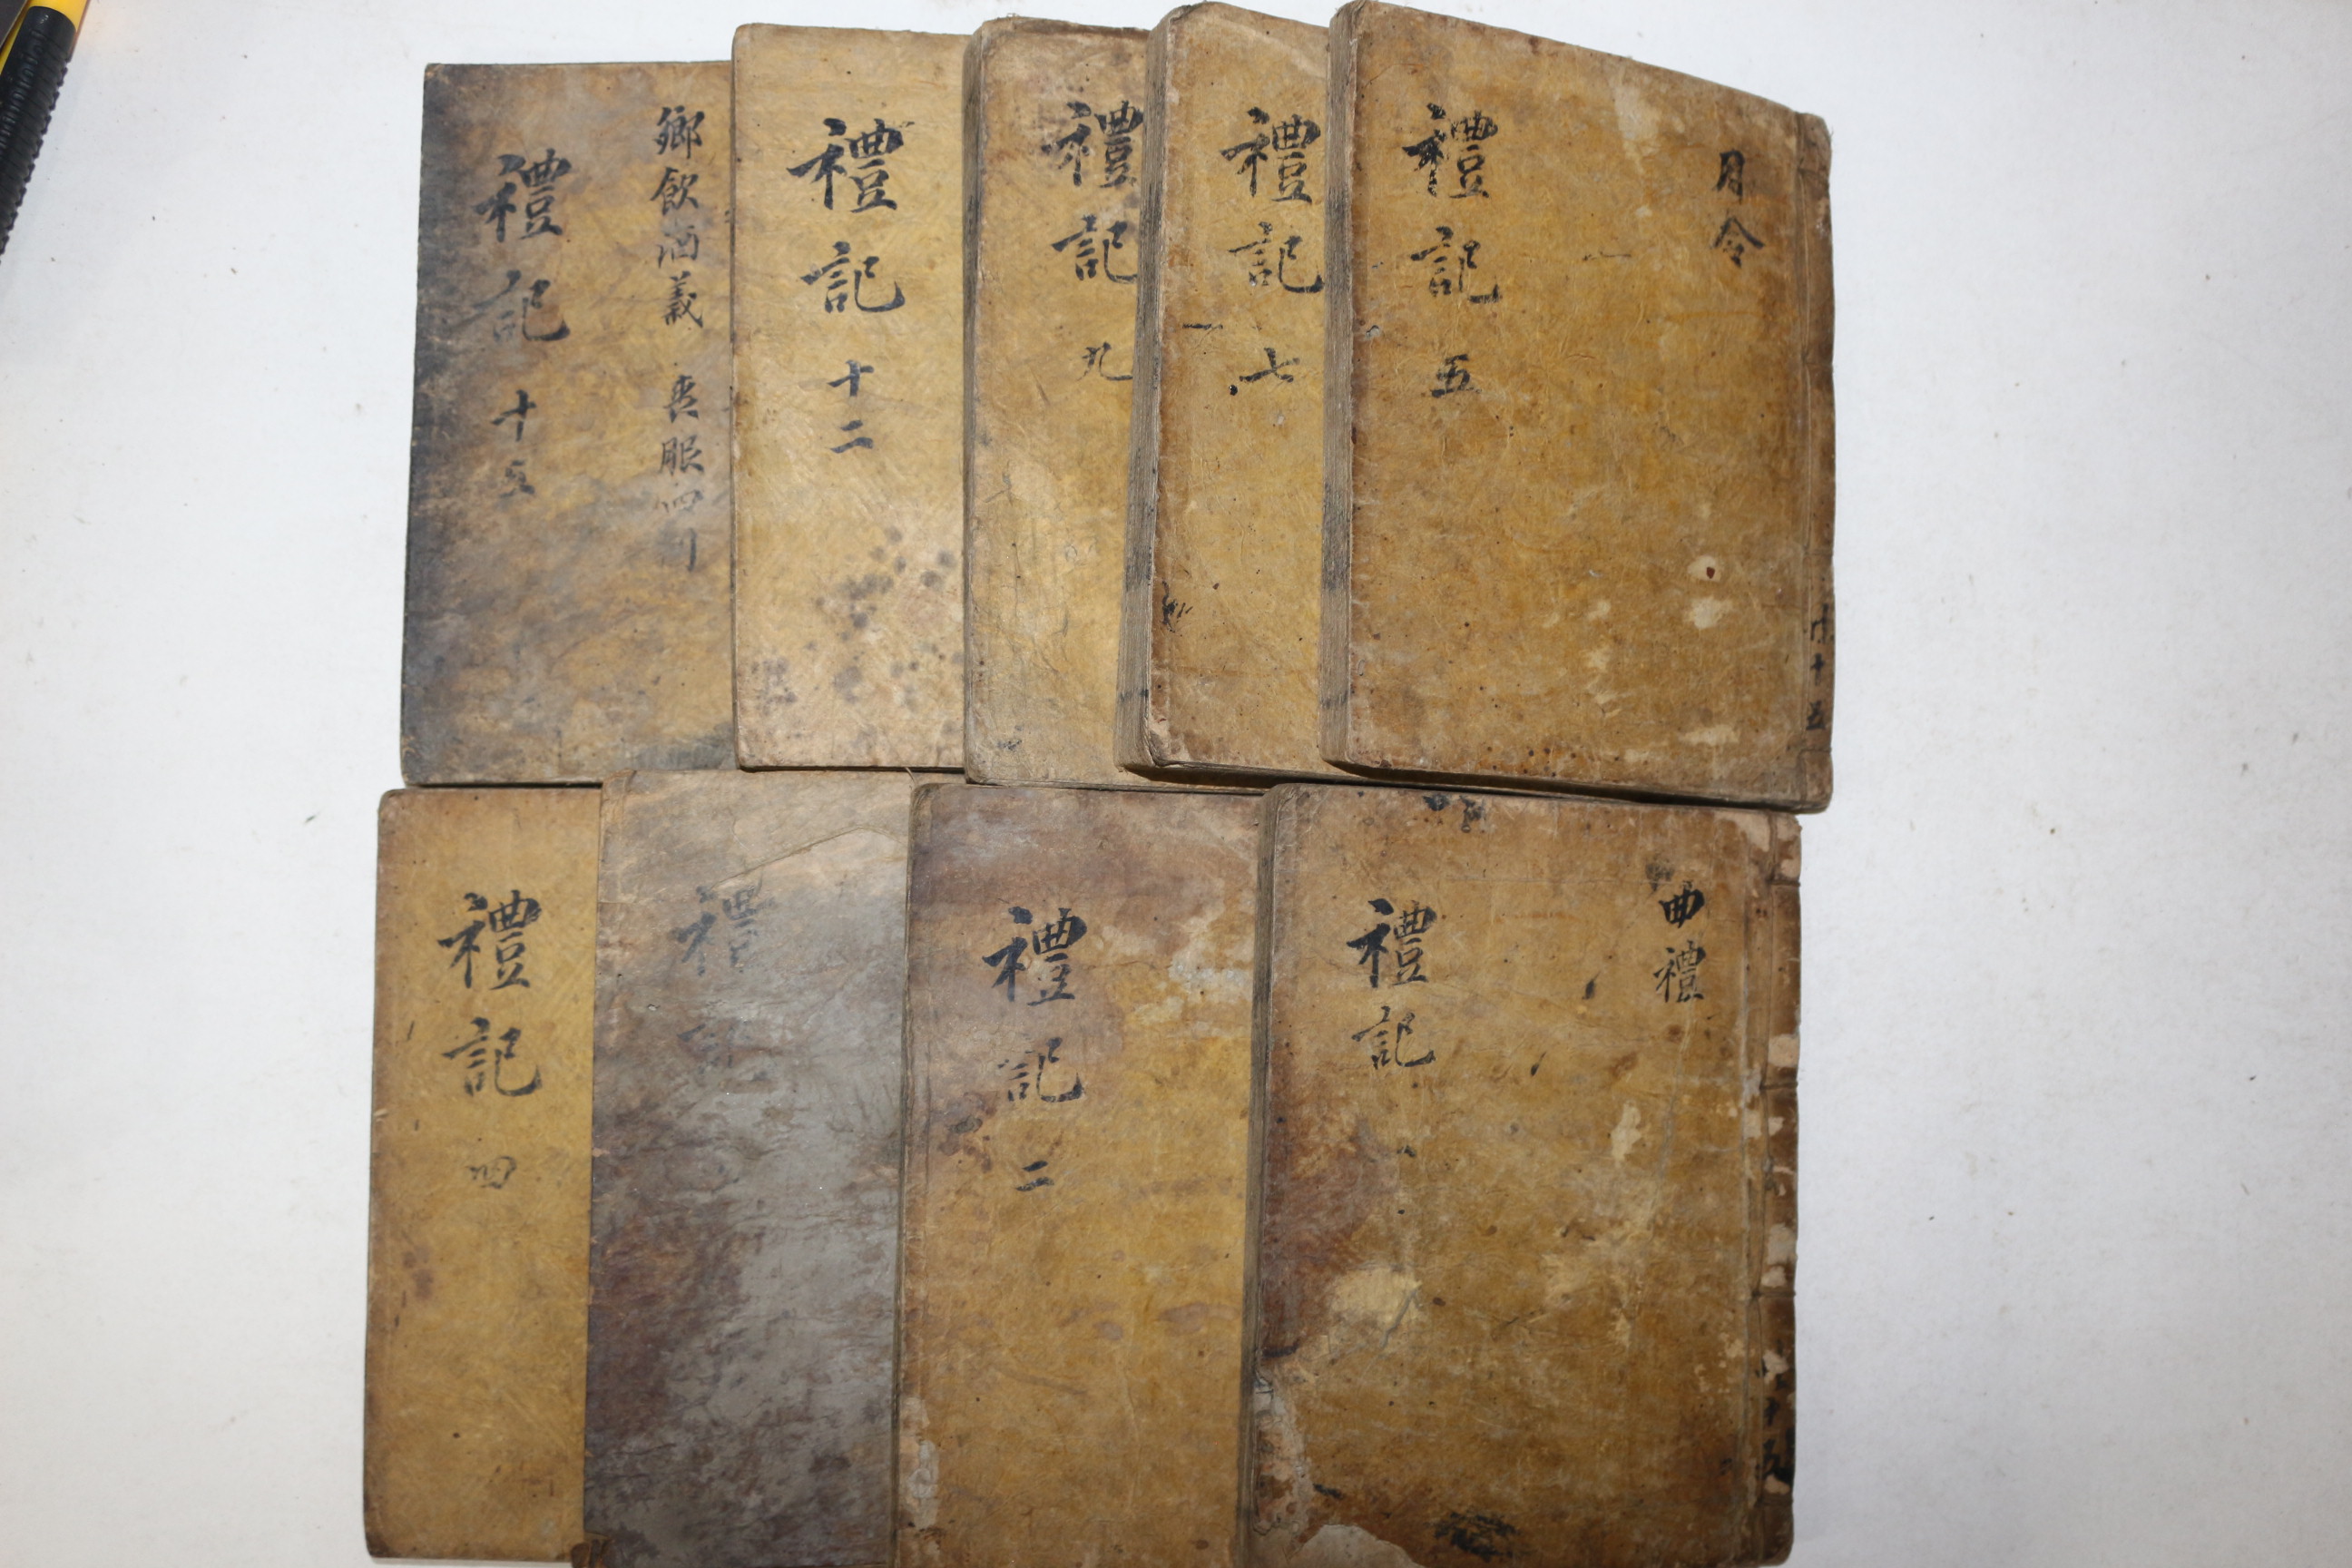 月令
禮記 五
共十五
禮記 七
禮記 九
禮記 十二
鄕飮酒義 喪服四制
禮記 十五
曲禮
禮記 一
十五
禮記 二
禮記
禮記 四